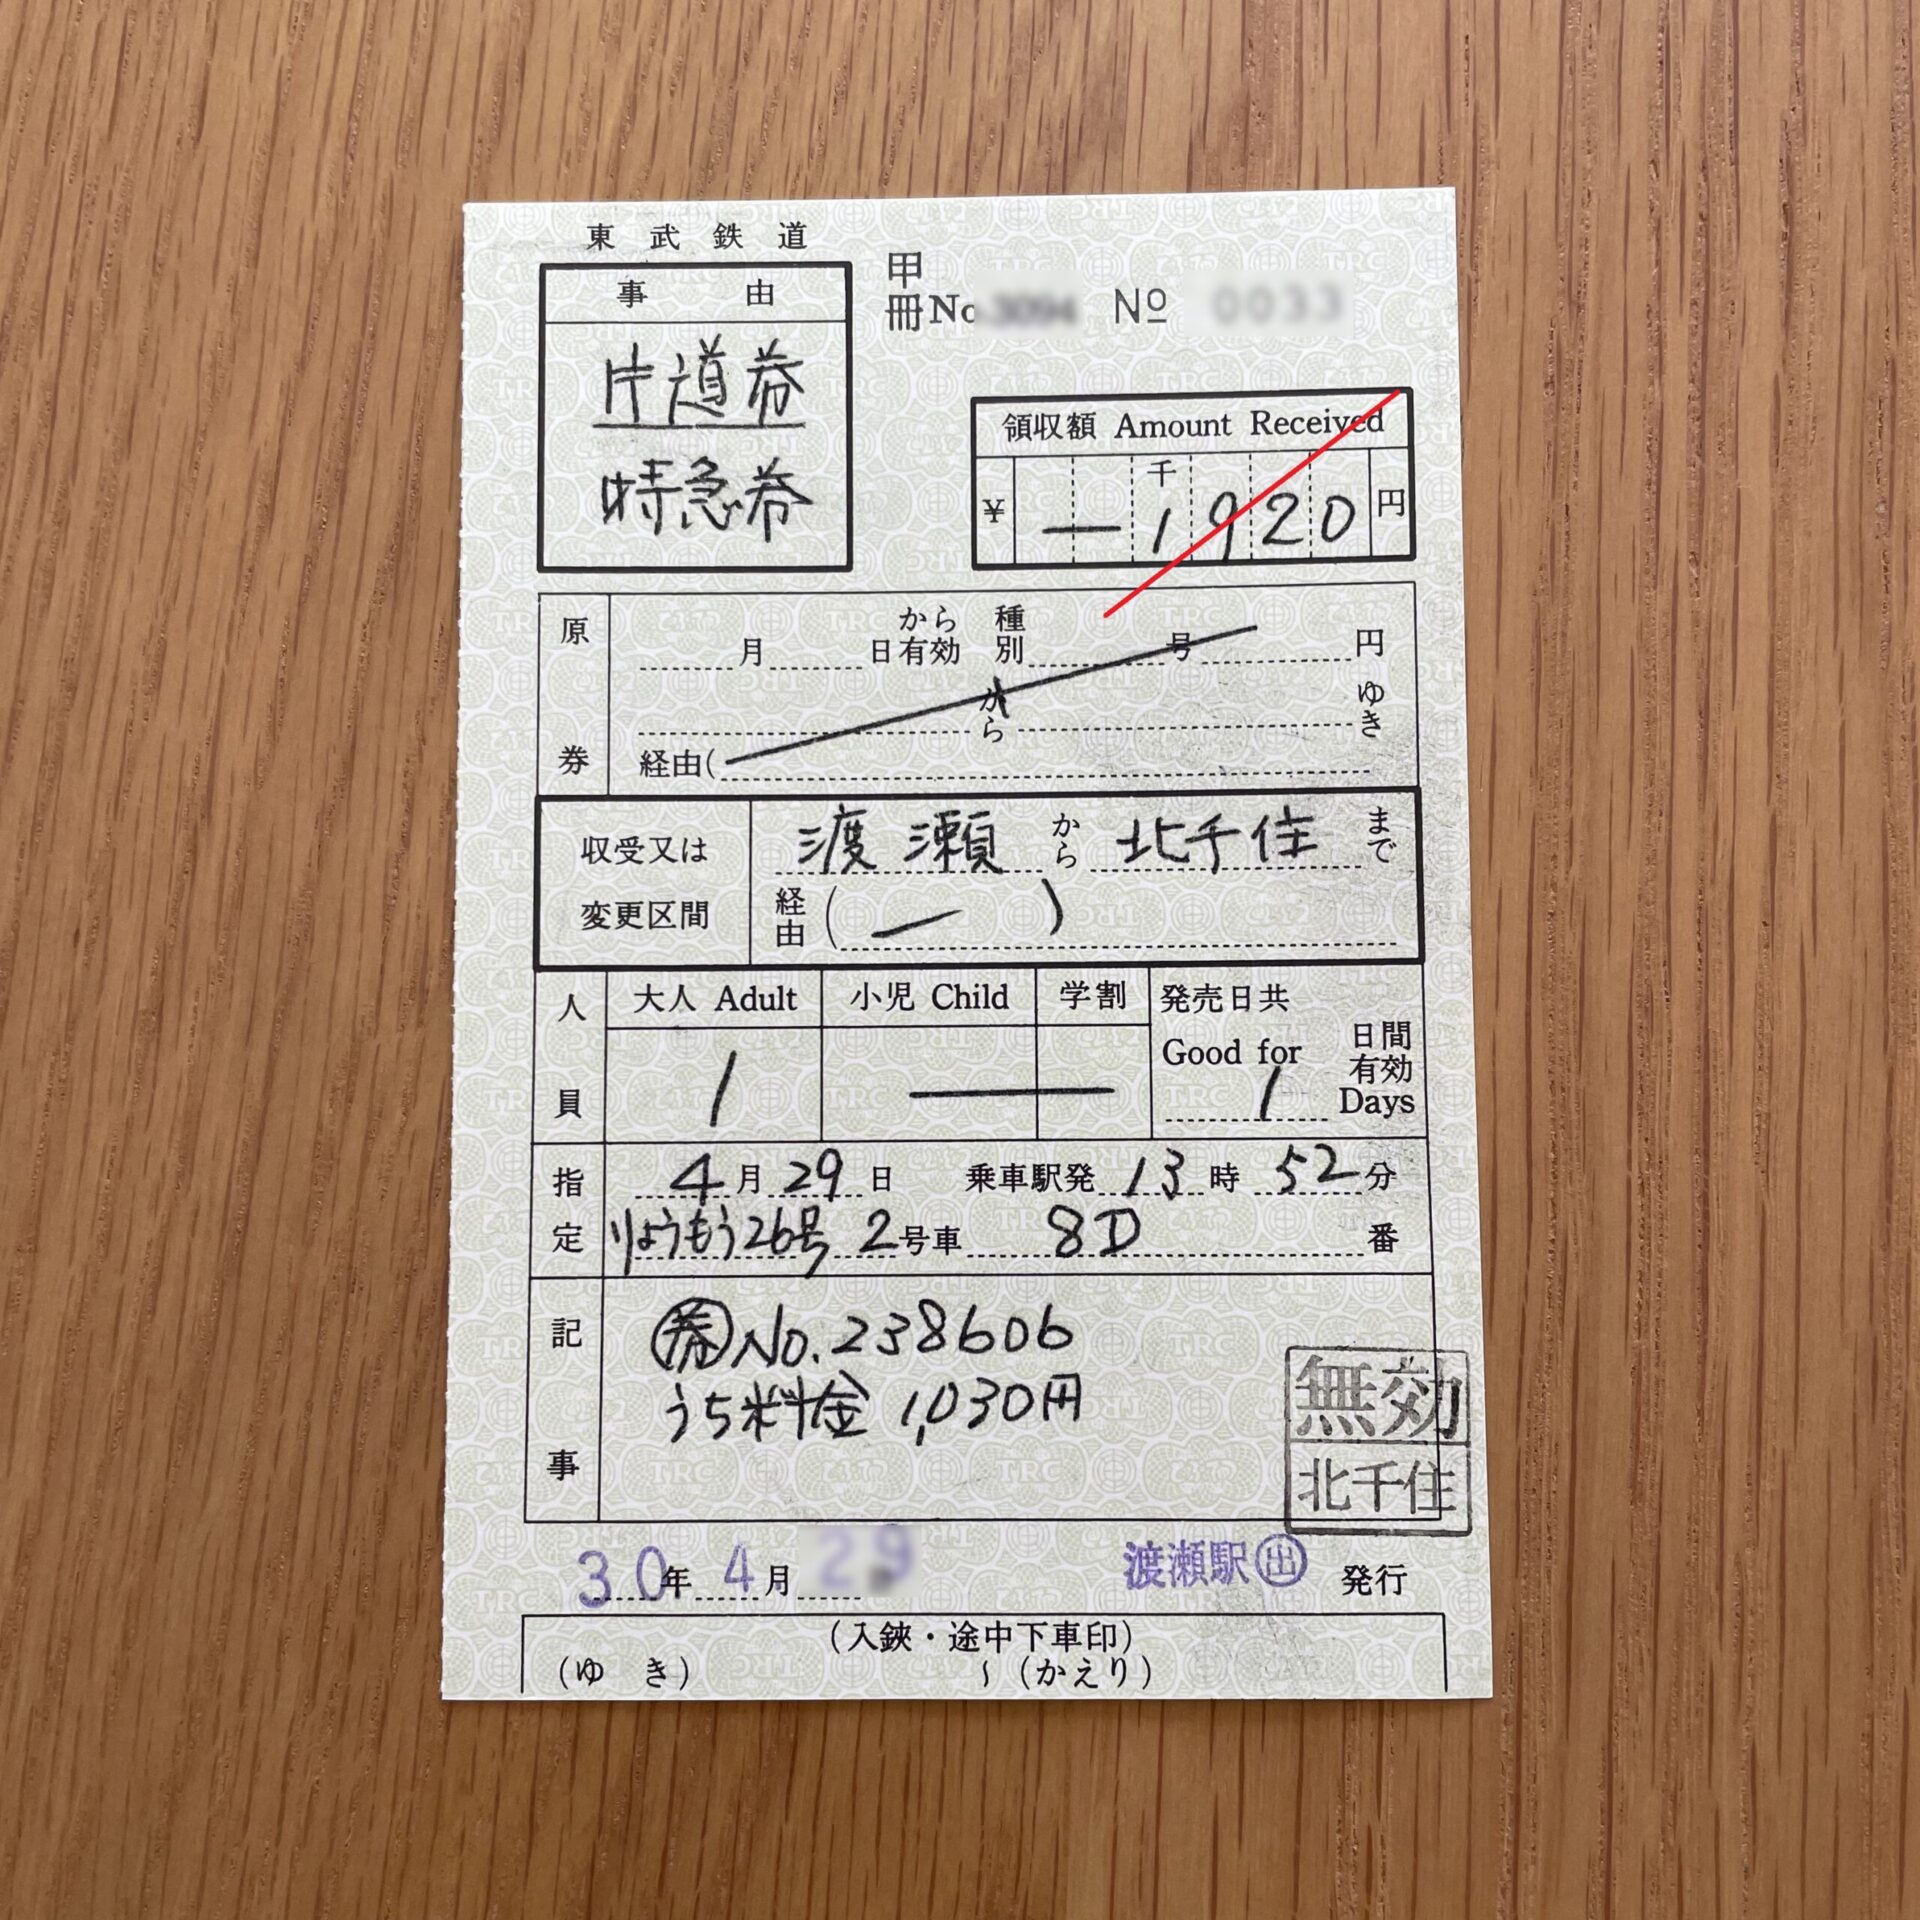 東武鉄道
事由
片道券
特急券
甲
冊No Nº
領収額 Amount Received
千
¥ 一1920円
原券
月 日から有効 種別 号 円
から ゆき
経由(
収受又は変更区間
渡瀬から北千住まで
経由(ー)
人員
大人 Adult 小児 Child 学割 発売日共
1 ー Good for 1 日間有効 Days
指定
4月29日 乗車駅発13時52分
りょうもう26号 2号車 8D 番
記事
㊎券No.238606
うち料金 1,030円
無効
北千住
30年4月29 渡瀬駅出 発行
(入鋏・途中下車印)
(ゆき) 〜(かえり)